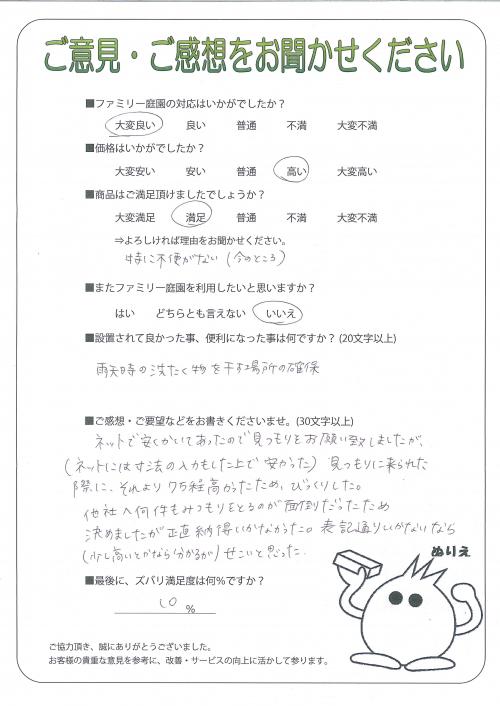 ご意見・ご感想をお聞かせください
■ファミリー庭園の対応はいかがでしたか?
大変良い 良い 普通 不満 大変不満
■価格はいかがでしたか?
大変安い 安い 普通 高い 大変高い
■商品はご満足頂けましたでしょうか?
大変満足 満足 普通 不満 大変不満
⇒よろしければ理由をお聞かせください。
特に不便がない(今のところ)
■またファミリー庭園を利用したいと思いますか?
はい どちらとも言えない いいえ
■設置されて良かった事、便利になった事は何ですか?(20文字以上)
雨天時の洗たく物を干す場所の確保
■ご感想・ご要望などをお書きくださいませ。(30文字以上)
ネットで安くかいてあったので見つもりをお願い致しましたが、
(ネットには寸法の入力もした上で安かった)見つもりに来られた
際に、それより7万程高かったため、びっくりした。
他社へ何件もみつもりをとるのが面倒だったため
決めましたが正直納得いかなかった。表記通りいかないなら
(少し高いとかなら分かるが)せこいと思った。
ぬりえ
■最後に、ズバリ満足度は何%ですか?
%
ご協力頂き、誠にありがとうございました。
お客様の貴重な意見を参考に、改善・サービスの向上に活かして参ります。